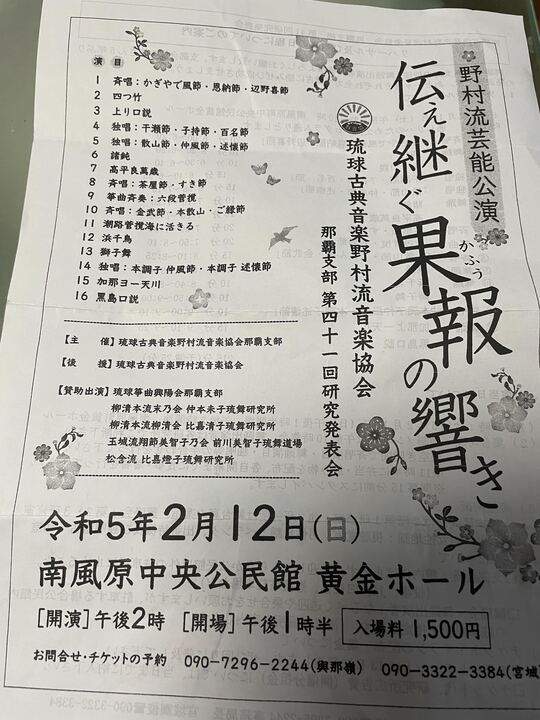 野村流芸能公演
伝え継ぐ果報の響き
かふう
琉球古典音楽野村流音楽協会
那覇支部 第四十一回研究発表会
演 目
1 斉唱：かぎやで風節・恩納節・辺野喜節
2 四つ竹
3 上り口説
4 独唱：干瀬節・子持節・百名節
5 独唱：散山節・仲風節・述懐節
6 諸鈍
7 高平良萬歳
8 斉唱：茶屋節・すき節
9 箏曲斉奏：六段菅撹
10 斉唱：金武節・本散山・ご縁節
11 潮路菅撹海に活きる
12 浜千鳥
13 獅子舞
14 独唱：本調子 仲風節・本調子 述懐節
15 加那ヨー天川
16 黒島口説
【主 催】琉球古典音楽野村流音楽協会那覇支部
【後 援】琉球古典音楽野村流音楽協会
【賛助出演】琉球箏曲興陽会那覇支部
柳清本流末乃会 仲本末子琉舞研究所
柳清本流柳清会 比嘉清子琉舞研究所
玉城流翔節美智子乃会 前川美智子琉舞道場
松含流 比嘉燈子琉舞研究所
令和5年2月12日(日)
南風原中央公民館 黄金ホール
[開演]午後2時 [開場]午後1時半 入場料 1,500円
お問合せ・チケットの予約 090-7296-2244(與那嶺) 090-3322-3384(宮城)